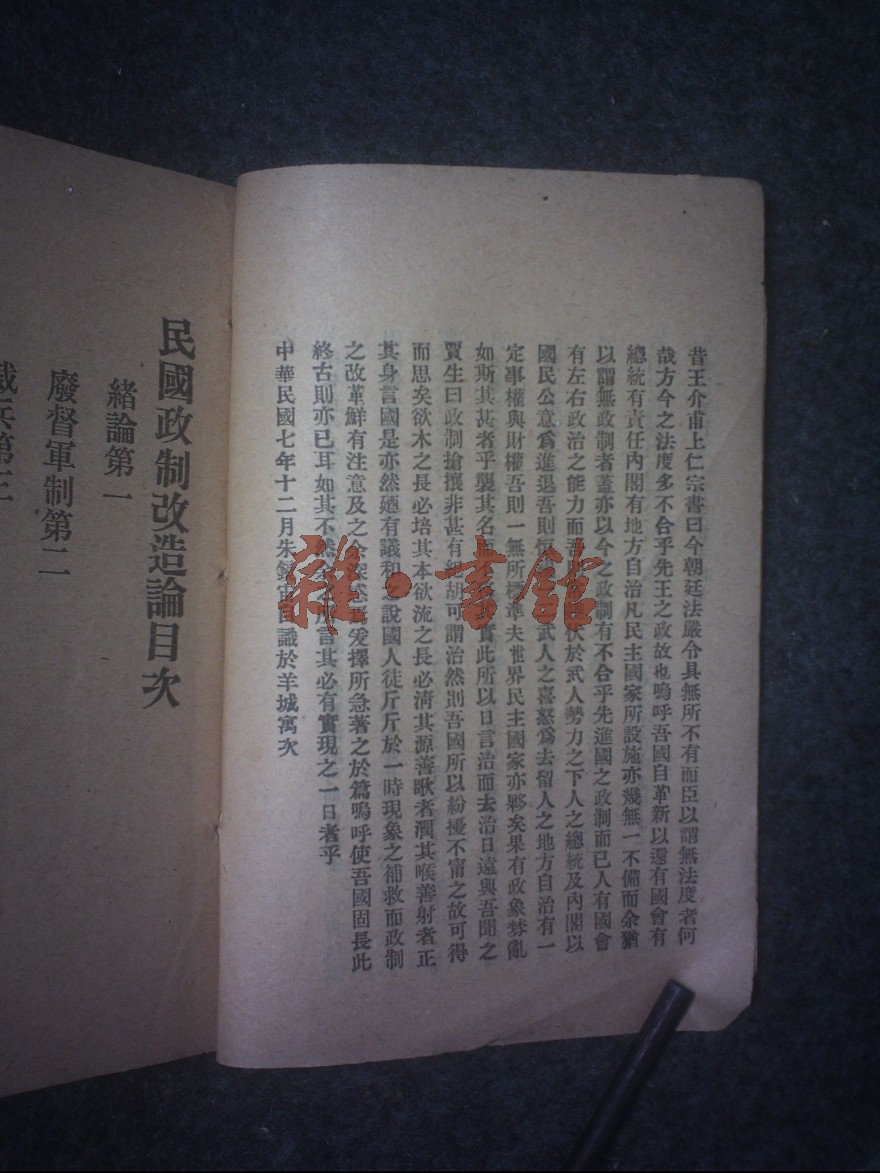 昔王介甫上仁宗書曰今朝廷法嚴令具無所不有而臣以謂無法度者何
哉方今之法度多不合乎先王之政故也嗚呼吾國自革新以還有國會有
總統有責任內閣有地方自治凡民主國家所設施亦幾無一不備而余猶
以謂無政制者蓋亦以今之政制有不合乎先進國之政制而已人有國會
有左右政治之能力而吾伏於武人勢力之下人之總統及內閣以
國民公意爲進退吾則恒武人之喜怒爲去留人之地方自治有一
定事權與財權吾則一無所標準夫世界民主國家亦夥矣果有政象棼亂
如斯其甚者乎襲其名而實此所以日言治而去治日遠與吾聞之
賈生曰政制搶攘非甚有紀胡可謂治然則吾國所以紛擾不甯之故可得
而思矣欲木之長必培其本欲流之長必淸其源善歌者潤其喉善射者正
其身言國是亦然廼有議和之說國人徒斤斤於一時現象之補救而政制
之改革鮮有注意及之余深感焉爰擇所急著之於篇嗚呼使吾國固長此
終古則亦已耳如其不然所言其必有實現之一日者乎
中華民國七年十二月朱自識於羊城寓次
民國政制改造論目次
緒論第一
廢督軍制第二
裁兵第三
雜·書館